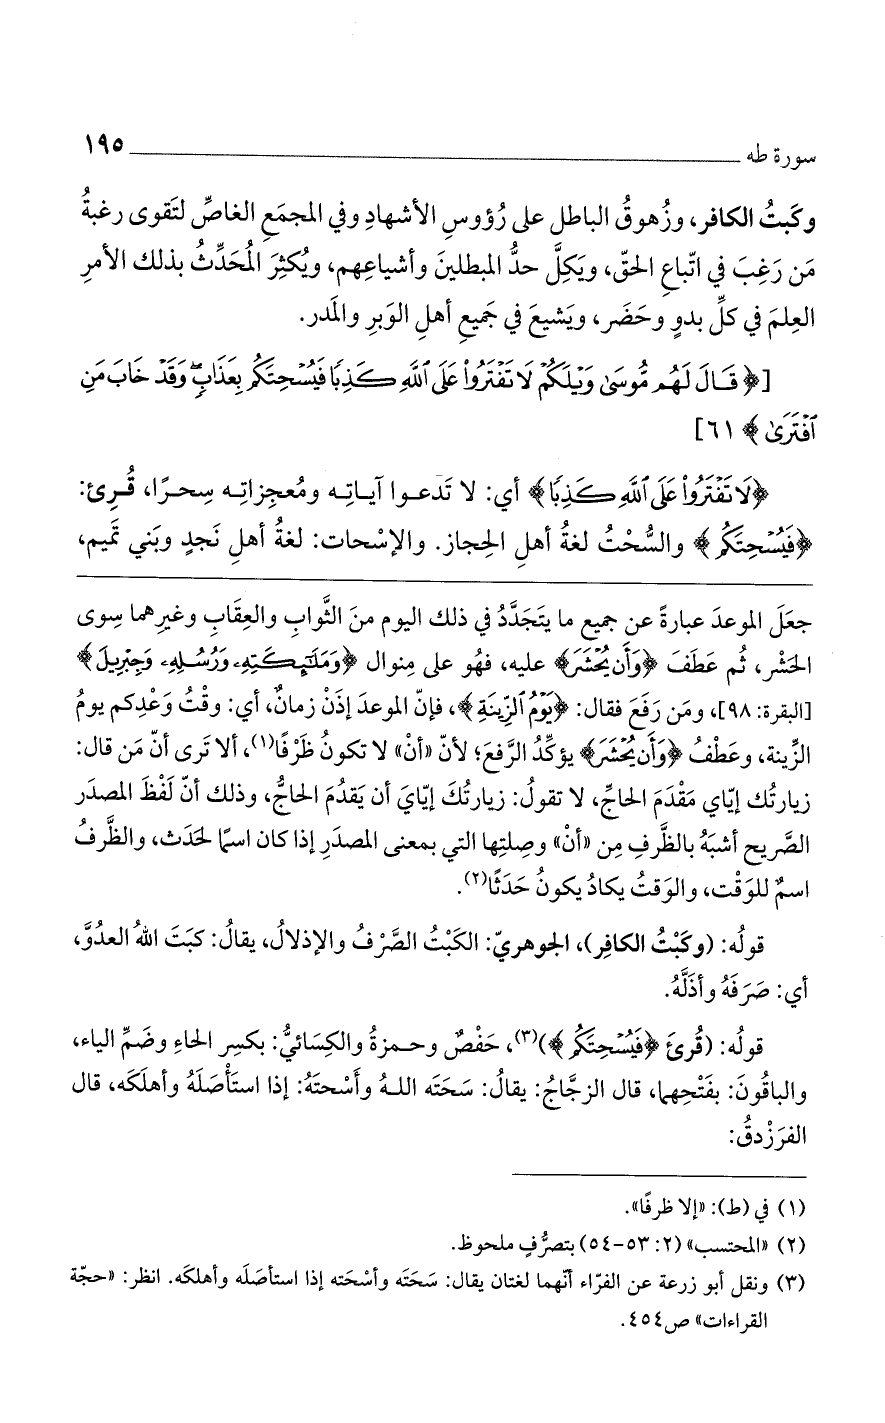 سورة طه ١٩٥
وكَبتُ الكافر، وزُهوقُ الباطل على رُؤوسِ الأشهادِ وفي المجمَعِ الغاصِّ لتَقوى رغبةُ
مَن رَغِبَ في اتّباعِ الحقّ، ويَكِلَّ حدُّ المبطلينَ وأشياعِهم، ويُكثِرَ المُحَدِّثُ بذلك الأمرِ
العِلمَ في كلِّ بدوٍ وحَضَر، ويَشيعَ في جَميعِ أهلِ الوَبرِ والمَدر.
[﴿ قَالَ لَهُم مُّوسَىٰ وَيْلَكُمْ لَا تَفْتَرُوا۟ عَلَى ٱللَّهِ كَذِبًا فَيُسْحِتَكُم بِعَذَابٍ ۖ وَقَدْ خَابَ مَنِ
ٱفْتَرَىٰ ﴾ ٦١]
﴿لَا تَفْتَرُوا۟ عَلَى ٱللَّهِ كَذِبًا﴾ أي: لا تَدَعوا آياتِه ومُعجِزاتِه سِحرًا، قُرِئ:
﴿فَيُسْحِتَكُم ﴾ والسُّحْتُ لغةُ أهلِ الحِجاز. والإسْحات: لغةُ أهلِ نَجدٍ وبَني تَميم،
جعَلَ الموعدَ عبارةً عن جميع ما يتَجَدَّدُ في ذلك اليوم منَ الثَّوابِ والعِقابِ وغيرِهما سِوى
الحَشْر، ثُم عَطَفَ ﴿وَأَن يُحْشَرَ﴾ عليه، فهُو على مِنوال ﴿وَمَلَـٰٓئِكَتِهِۦ وَرُسُلِهِۦ وَجِبْرِيلَ﴾
[البقرة: ٩٨]، ومَن رَفَعَ فقال: ﴿يَوْمُ ٱلزِّينَةِ﴾، فإنّ الموعدَ إذَنْ زمانٌ، أي: وقْتُ وَعْدِكم يومُ
الزِّينة، وعَطْفُ ﴿وَأَن يُحْشَرَ﴾ يؤكِّدُ الرَّفعَ؛ لأنّ «أنْ» لا تكونُ ظَرْفًا(١)، ألا تَرى أنّ مَن قال:
زيارتُك إيّاي مَقْدَمَ الحاجِّ، لا تقولُ: زيارتُكَ إيّايَ أن يَقدُمَ الحاجُّ، وذلك أنّ لَفْظَ المصدَر
الصَّريح أشبَهُ بالظَّرفِ مِن «أنْ» وصِلتِها التي بمعنى المصدَرِ إذا كان اسمًا لحَدَث، والظَّرفُ
اسمٌ للوَقْت، والوَقتُ يكادُ يكونُ حَدَثًا(٢).
قولُه: (وكَبْتُ الكافِر)، الجوهريّ: الكَبْتُ الصَّرْفُ والإذلالُ، يقالُ: كبَتَ اللهُ العدُوَّ،
أي: صَرَفَهُ وأذَلَّهُ.
قولُه: (قُرِئَ ﴿فَيُسْحِتَكُم ﴾)(٣)، حَفْصٌ وحمزةُ والكِسَائيُّ: بكسرِ الحاءِ وضَمِّ الياء،
والباقُونَ: بفَتْحِهما، قال الزجَّاجُ: يقالُ: سَحَتَه اللهُ وأَسْحتَهُ: إذا استَأْصَلَهُ وأهلَكَه، قال
الفرَزْدقُ:
(١) في (ط): «إلا ظرفًا».
(٢) «المحتسب» (٢: ٥٣-٥٤) بتصرُّفٍ ملحوظ.
(٣) ونقل أبو زرعة عن الفرّاء أنّهما لغتان يقال: سَحَتَه وأسْحَته إذا استأصَلَه وأهلكَه. انظر: «حجّة
القراءات» ص٤٥٤.